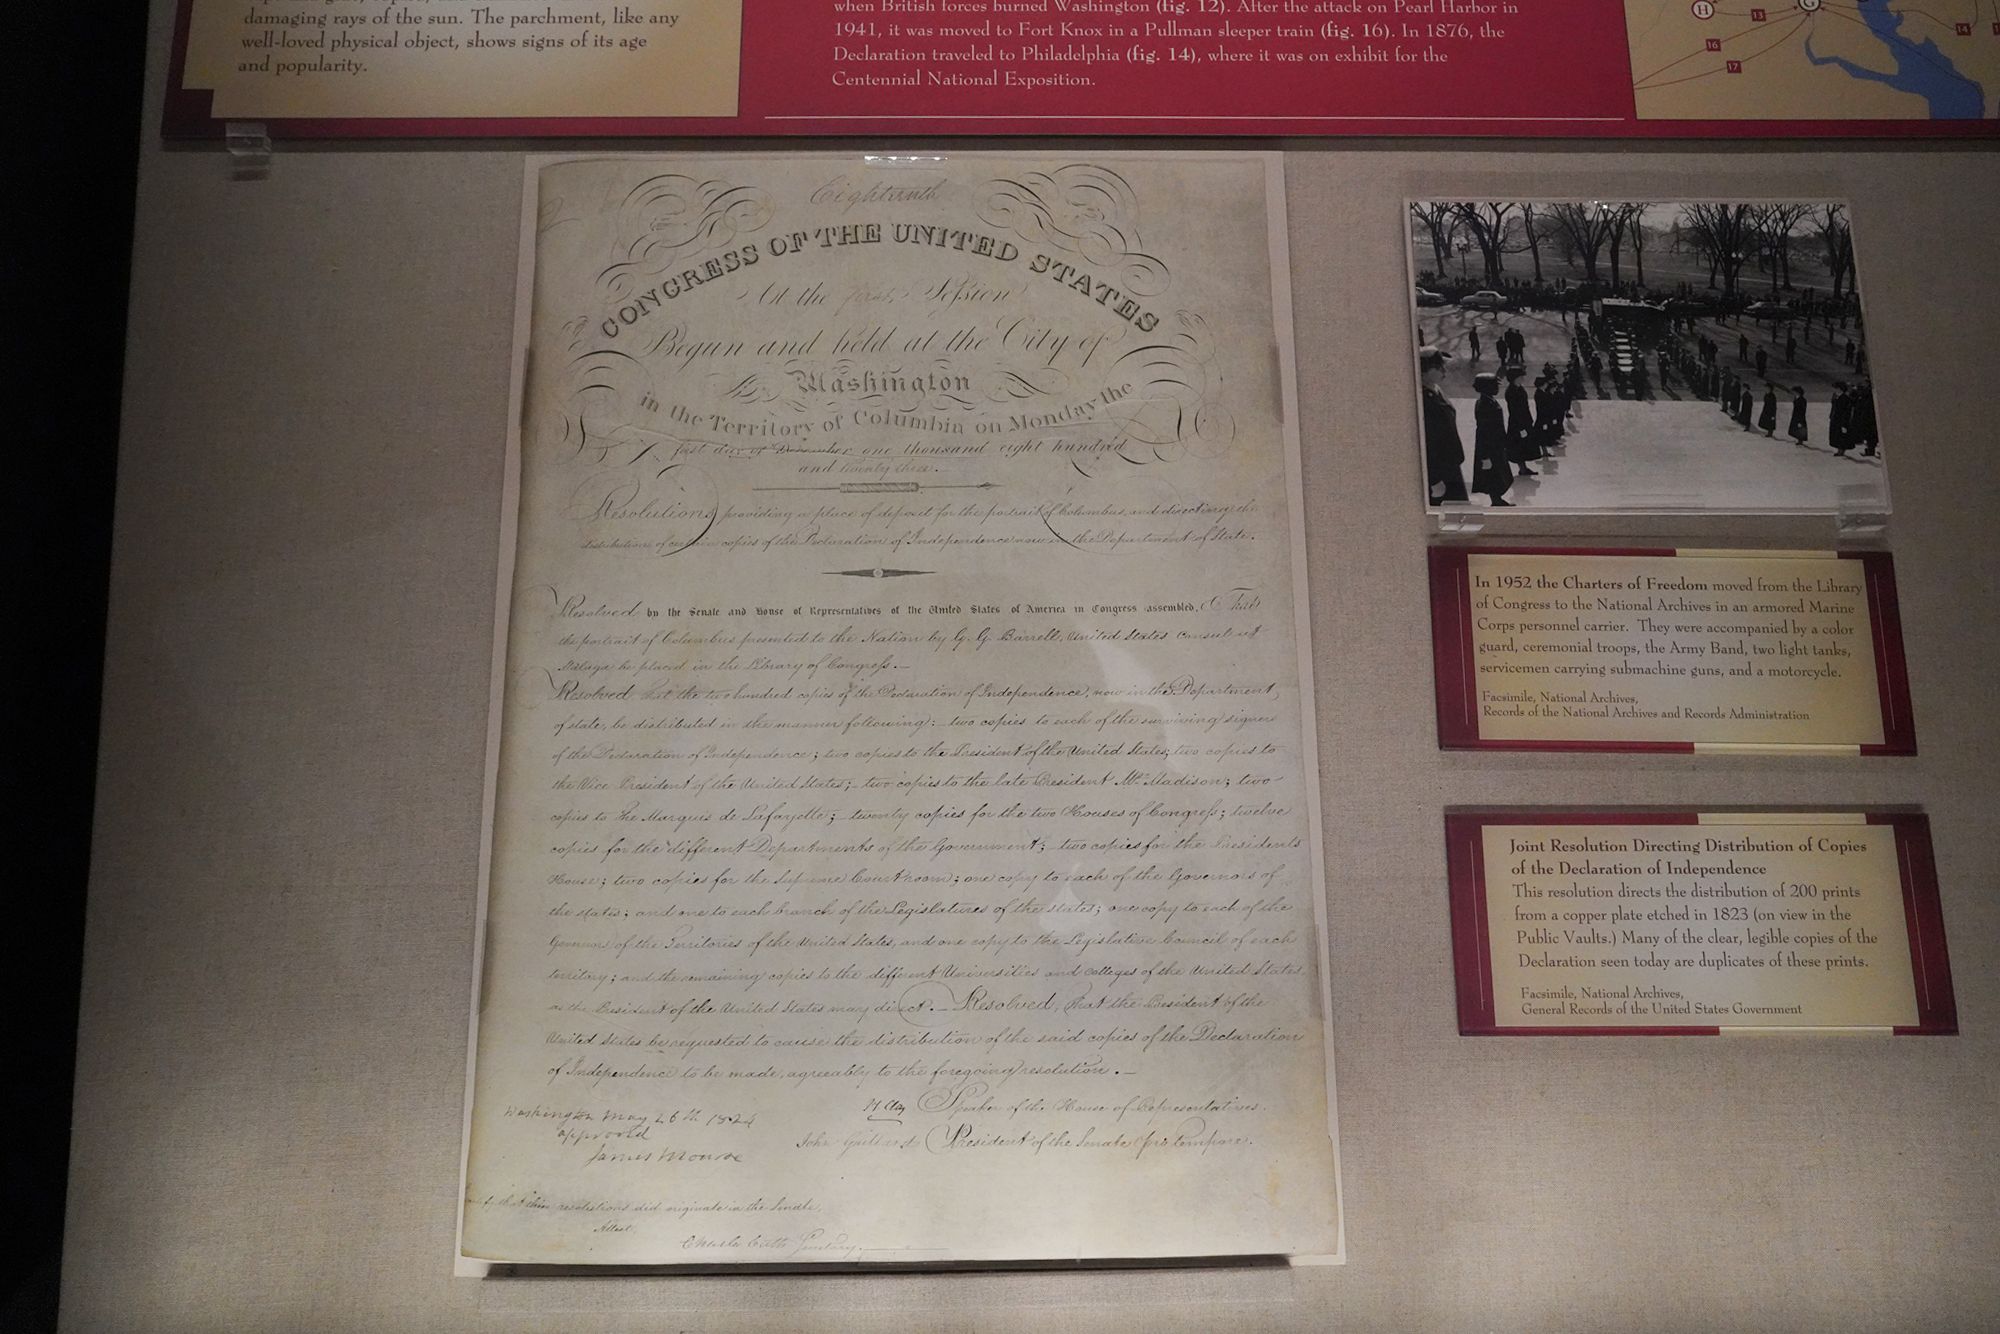 damaging rays of the sun. The parchment, like any
well-loved physical object, shows signs of its age
and popularity.
when British forces burned Washington (fig. 12). After the attack on Pearl Harbor in
1941, it was moved to Fort Knox in a Pullman sleeper train (fig. 16). In 1876, the
Declaration traveled to Philadelphia (fig. 14), where it was on exhibit for the
Centennial National Exposition.
H
13
G
16
17
14
Eighteenth
CONGRESS OF THE UNITED STATES
At the first Session
Begun and held at the City of
Washington
in the Territory of Columbia on Monday the
first day of December one thousand eight hundred
and twenty three.
Resolutions providing a place of deposit for the portrait of Columbus, and directing the
distribution of certain copies of the Declaration of Independence now in the Department of State.
Resolved by the Senate and House of Representatives of the United States of America in Congress assembled, That
the portrait of Columbus presented to the Nation by G. G. Barrell, United States Consul at
Malaga be placed in the Library of Congress.—
Resolved that the two hundred copies of the Declaration of Independence, now in the Department,
of state, be distributed in the manner following:— two copies to each of the surviving signers
of the Declaration of Independence; two copies to the President of the United States; two copies to
the Vice President of the United States;— two copies to the late President Mr. Madison; two
copies to the Marquis de Lafayette;— twenty copies for the two Houses of Congress; twelve
copies for the different Departments of the Government;— two copies for the Presidents
House; two copies for the Supreme Court room; one copy to each of the Governors of
the states; and one to each branch of the Legislatures of the states; one copy to each of the
Governors of the Territories of the United States, and one copy to the Legislative Council of each
territory; and the remaining copies to the different Universities and colleges of the United States
as the President of the United States may direct.— Resolved, that the President of the
United States be requested to cause the distribution of the said copies of the Declaration
of Independence to be made, agreeably to the foregoing resolution.—
H Clay Speaker of the House of Representatives.
Washington May 26th 1824
approved
James Monroe
John Gaillard President of the Senate pro tempore.
that these resolutions did originate in the Senate,
Attest,
Charles Cutts Secretary.
In 1952 the Charters of Freedom moved from the Library
of Congress to the National Archives in an armored Marine
Corps personnel carrier. They were accompanied by a color
guard, ceremonial troops, the Army Band, two light tanks,
servicemen carrying submachine guns, and a motorcycle.
Facsimile, National Archives,
Records of the National Archives and Records Administration
Joint Resolution Directing Distribution of Copies
of the Declaration of Independence
This resolution directs the distribution of 200 prints
from a copper plate etched in 1823 (on view in the
Public Vaults.) Many of the clear, legible copies of the
Declaration seen today are duplicates of these prints.
Facsimile, National Archives,
General Records of the United States Government